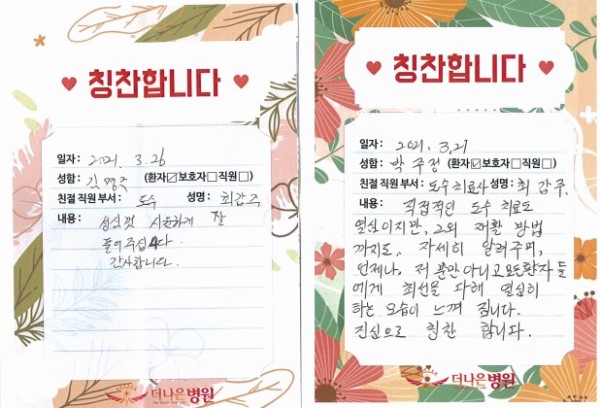 ♥ 칭찬합니다 ♥
일자 : 2021. 3. 26
성함 : 김영주 (환자☑보호자□직원□)
친절 직원 부서 : 도수 성명 : 최갑주
내용 : 성심껏 시원하게 잘
들어주십니다.
감사합니다.
더나은병원
♥ 칭찬합니다 ♥
일자 : 2021. 3. 27
성함 : 박주정 (환자☑보호자□직원□)
친절 직원 부서 : 도수치료사 성명 : 최갑주.
내용 : 직접적인 도수 치료도
열심이지만, 그외 재활 방법
까지도, 자세히 알려주며,
언제나, 저 뿐만 아니고 모든환자 들
에게 최선을 다해 열심히
하는 모습이 느껴 집니다.
진심으로 칭찬 합니다.
더나은병원